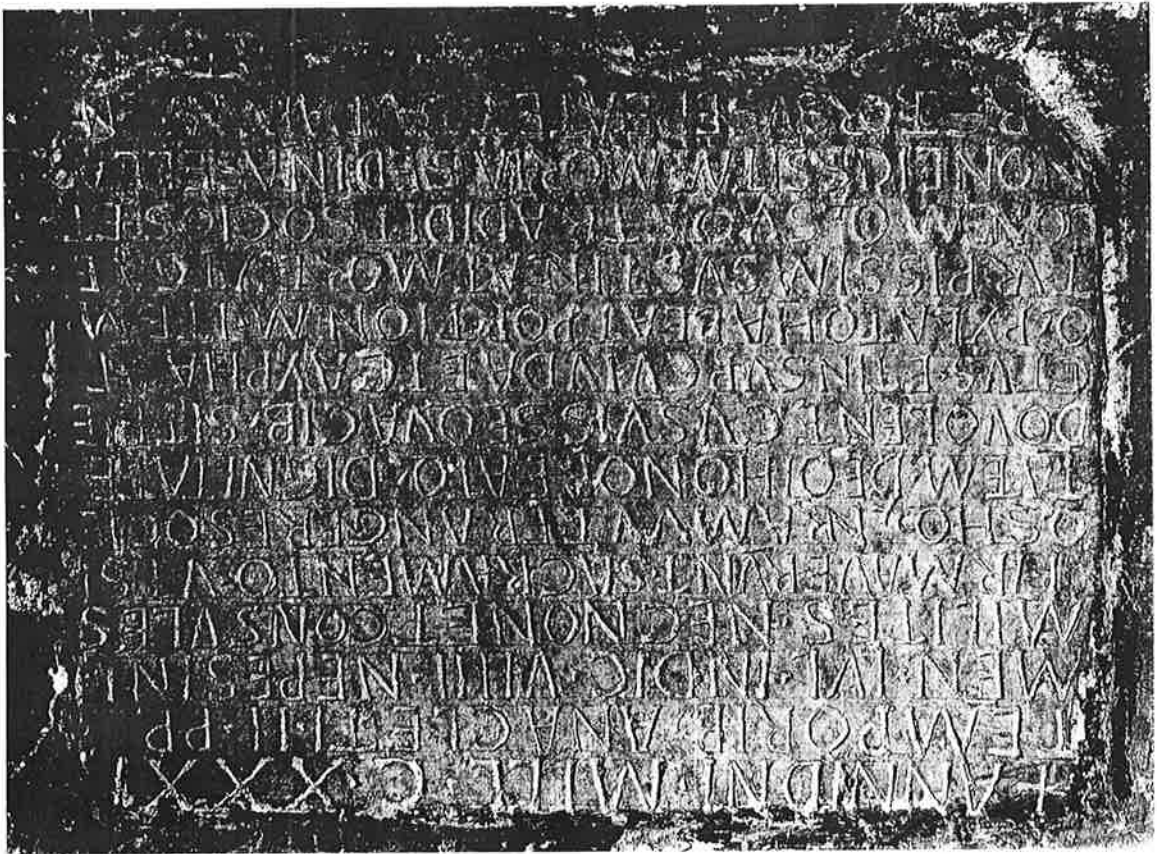 + ANNI DNI MILL · C · XXXI
TEMPORIB · ANACLETI · II · PP
MEN · IVL · INDIC · VIIII · NEPESINI
MILITES · NEC NON ET CONSVLES
FIRMAVERVNT SACRAMENTO · VT SI
QS HO NRAM VVLT FRANGERE SOCI
TATEM DE OI HONORE ATQ DIGNITATE
DO VOLENTE CV SVIS SEQVACIB · SIT EIE
CTVS · ET INSVP CV IVDA ET CAYPHA ET
PYLATO HABEAT PORTIONEM ITEM
TVRPISSIMV SVSTINEAT MORTE VT G
LONEM Q SVOS TRADIDIT SOCIOS ET
NON EIVS SIT MEMORIA SED IN ASELLA
RETRORSV